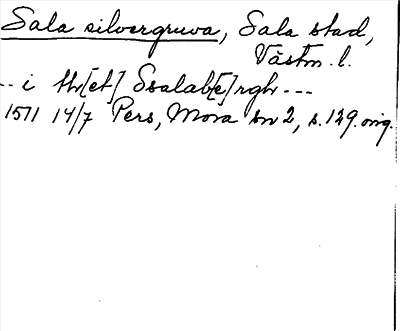 Sala silvergruva, Sala stad,
Västm. l.
-- i th[et] Ssalab[e]rgh ---
1571 14/7 Pers, Mora sn 2, s. 129. orig.